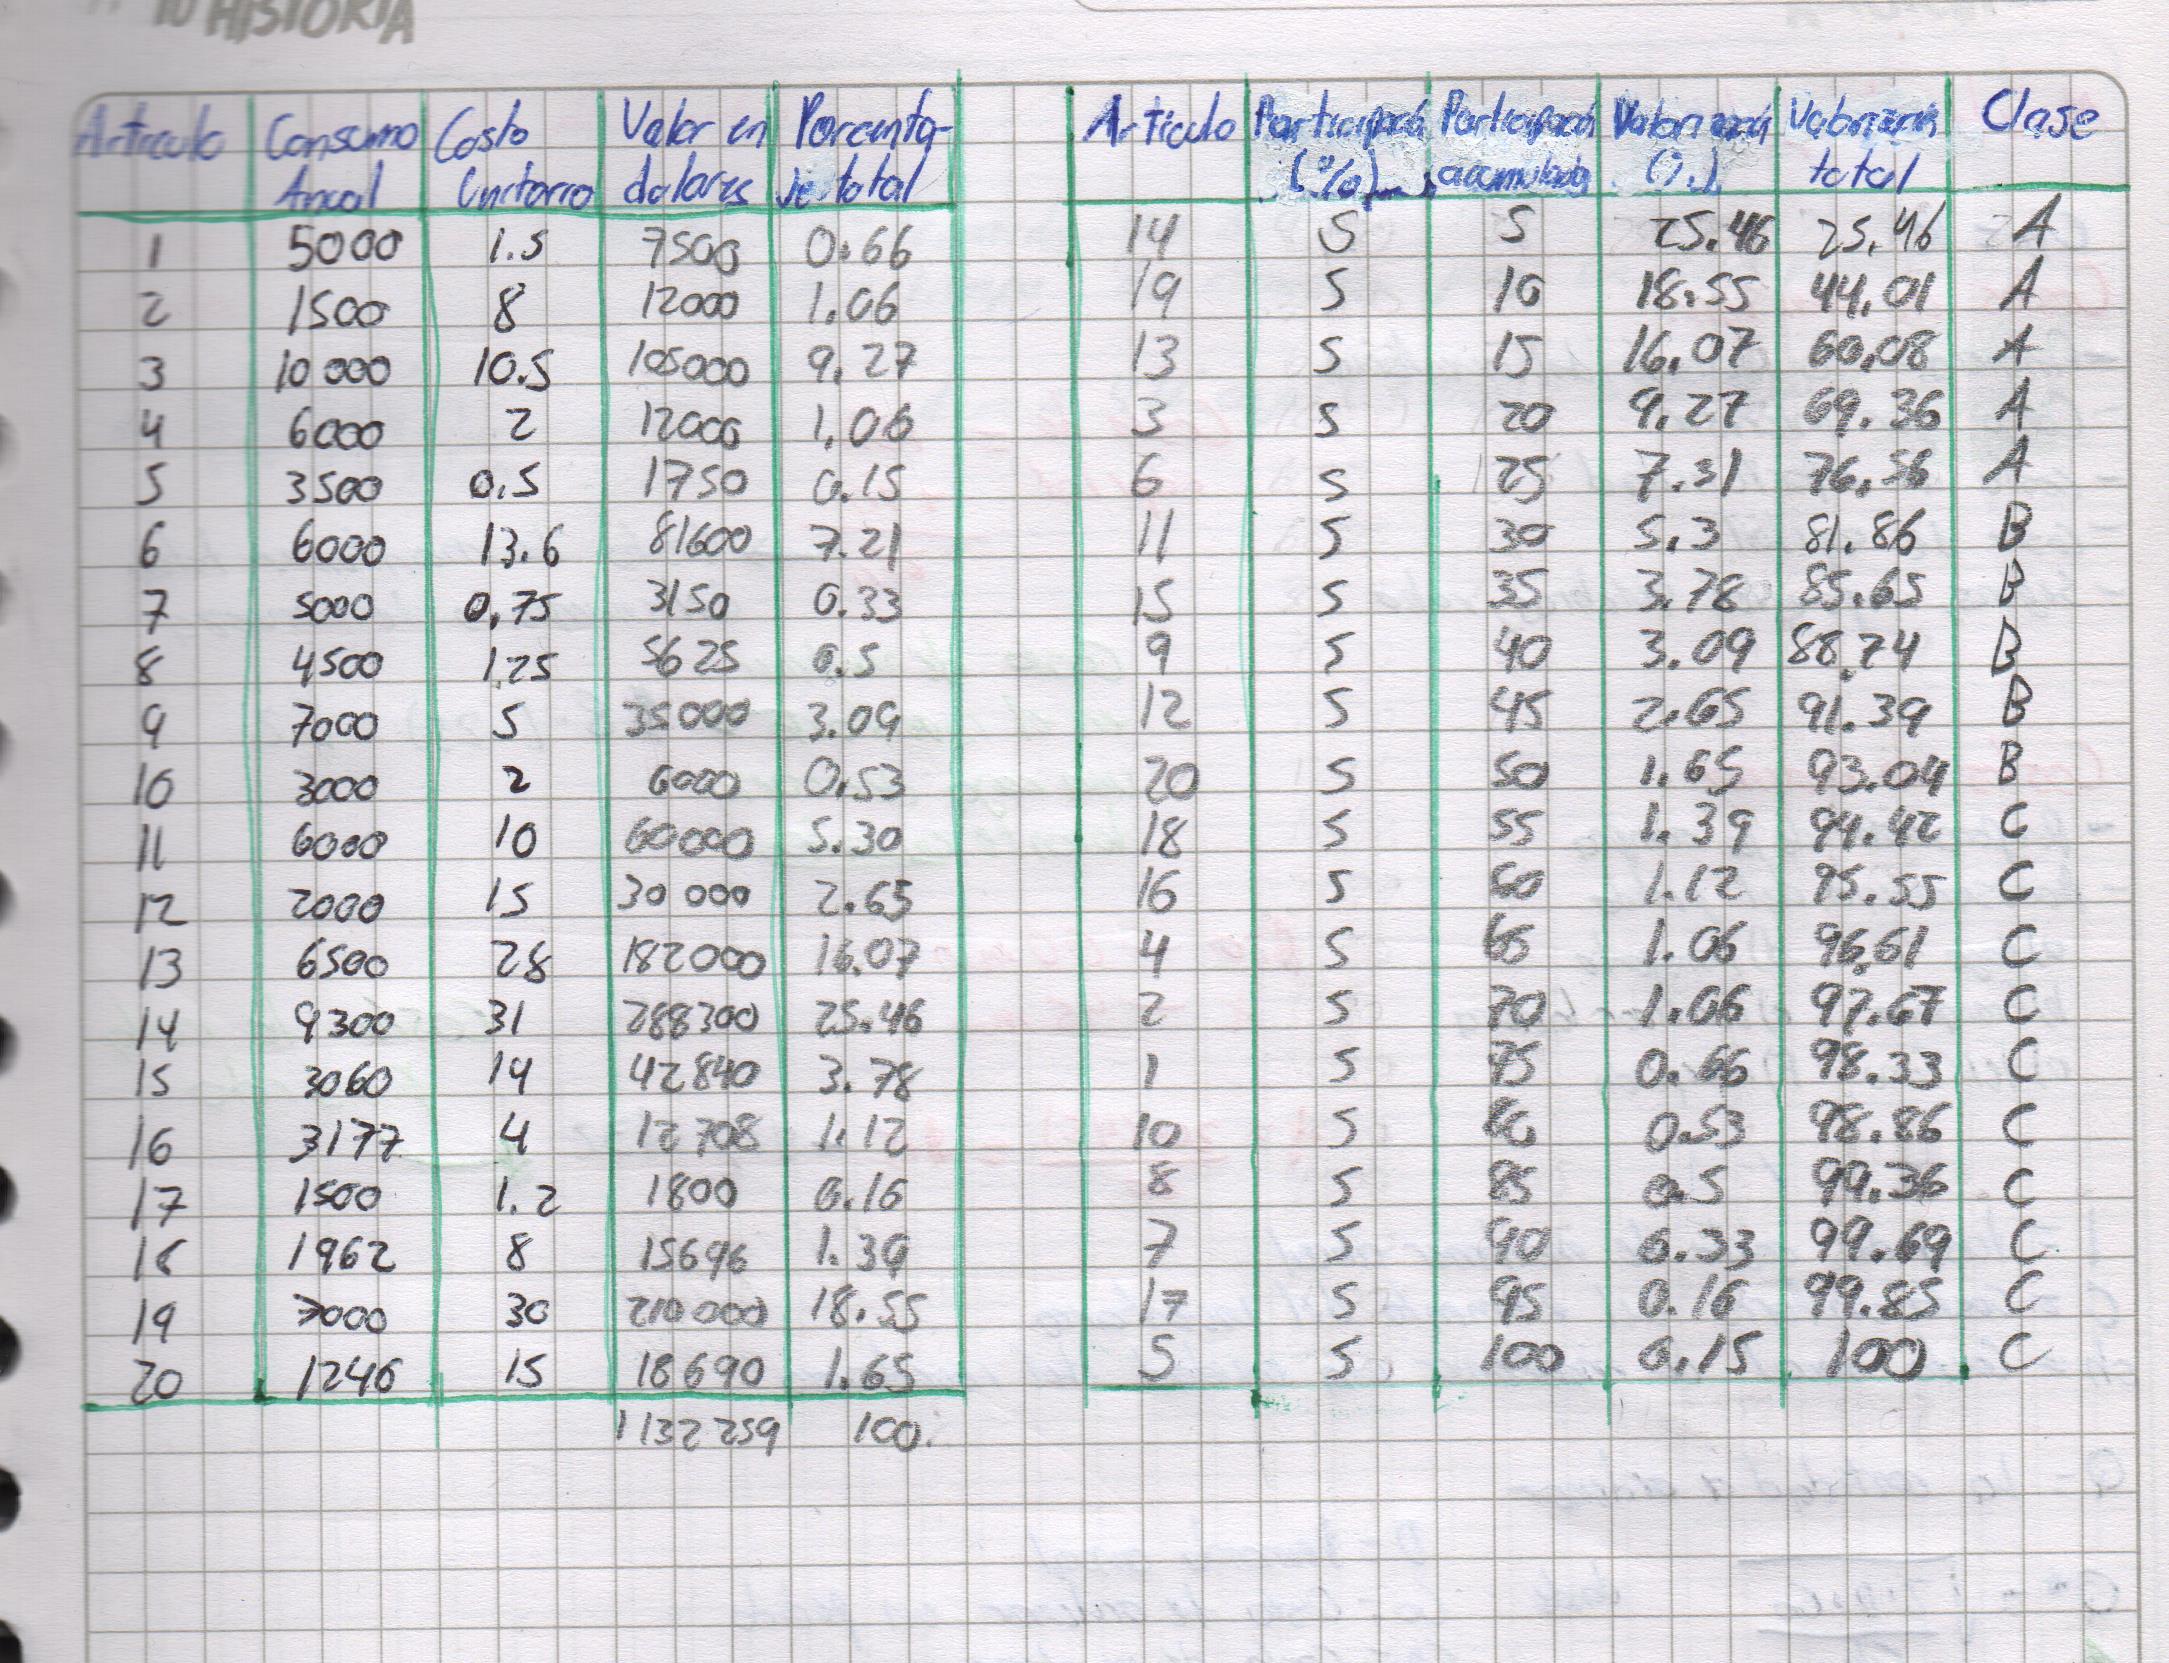 TU HISTORIA
Articulo Consumo Anual Costo Unitario Valor en dolares Porcentaje total
1 5000 1.5 7500 0.66
2 1500 8 12000 1.06
3 10 000 10.5 105000 9.27
4 6000 2 12000 1.06
5 3500 0.5 1750 0.15
6 6000 13.6 81600 7.21
7 5000 0,75 3150 0.33
8 4500 1,25 5625 0.5
9 7000 5 35000 3.09
10 3000 2 6000 0.53
11 6000 10 60000 5.30
12 2000 15 30 000 2.65
13 6500 28 182000 16.07
14 9300 31 288300 25.46
15 3060 14 42840 3.78
16 3177 4 12708 1.12
17 1500 1.2 1800 0.16
18 1962 8 15696 1.39
19 7000 30 210000 18.55
20 1246 15 18690 1.65
1132259 100
Articulo (%) acumulada total Clase
14 5 5 25.46 25.46 A
19 5 10 18.55 44.01 A
13 5 15 16.07 60.08 A
3 5 20 9.27 69.36 A
6 5 25 7.31 76.56 A
11 5 30 5.3 81.86 B
15 5 35 3.78 85.65 B
9 5 40 3.09 88.74 B
12 5 45 2.65 91.39 B
20 5 50 1.65 93.04 B
18 5 55 1.39 94.42 C
16 5 60 1.12 95.55 C
4 5 65 1.06 96.61 C
2 5 70 1.06 97.67 C
1 5 75 0.66 98.33 C
10 5 80 0.53 98.86 C
8 5 85 0.5 99.36 C
7 5 90 0.33 99.69 C
17 5 95 0.16 99.85 C
5 5 100 0.15 100 C